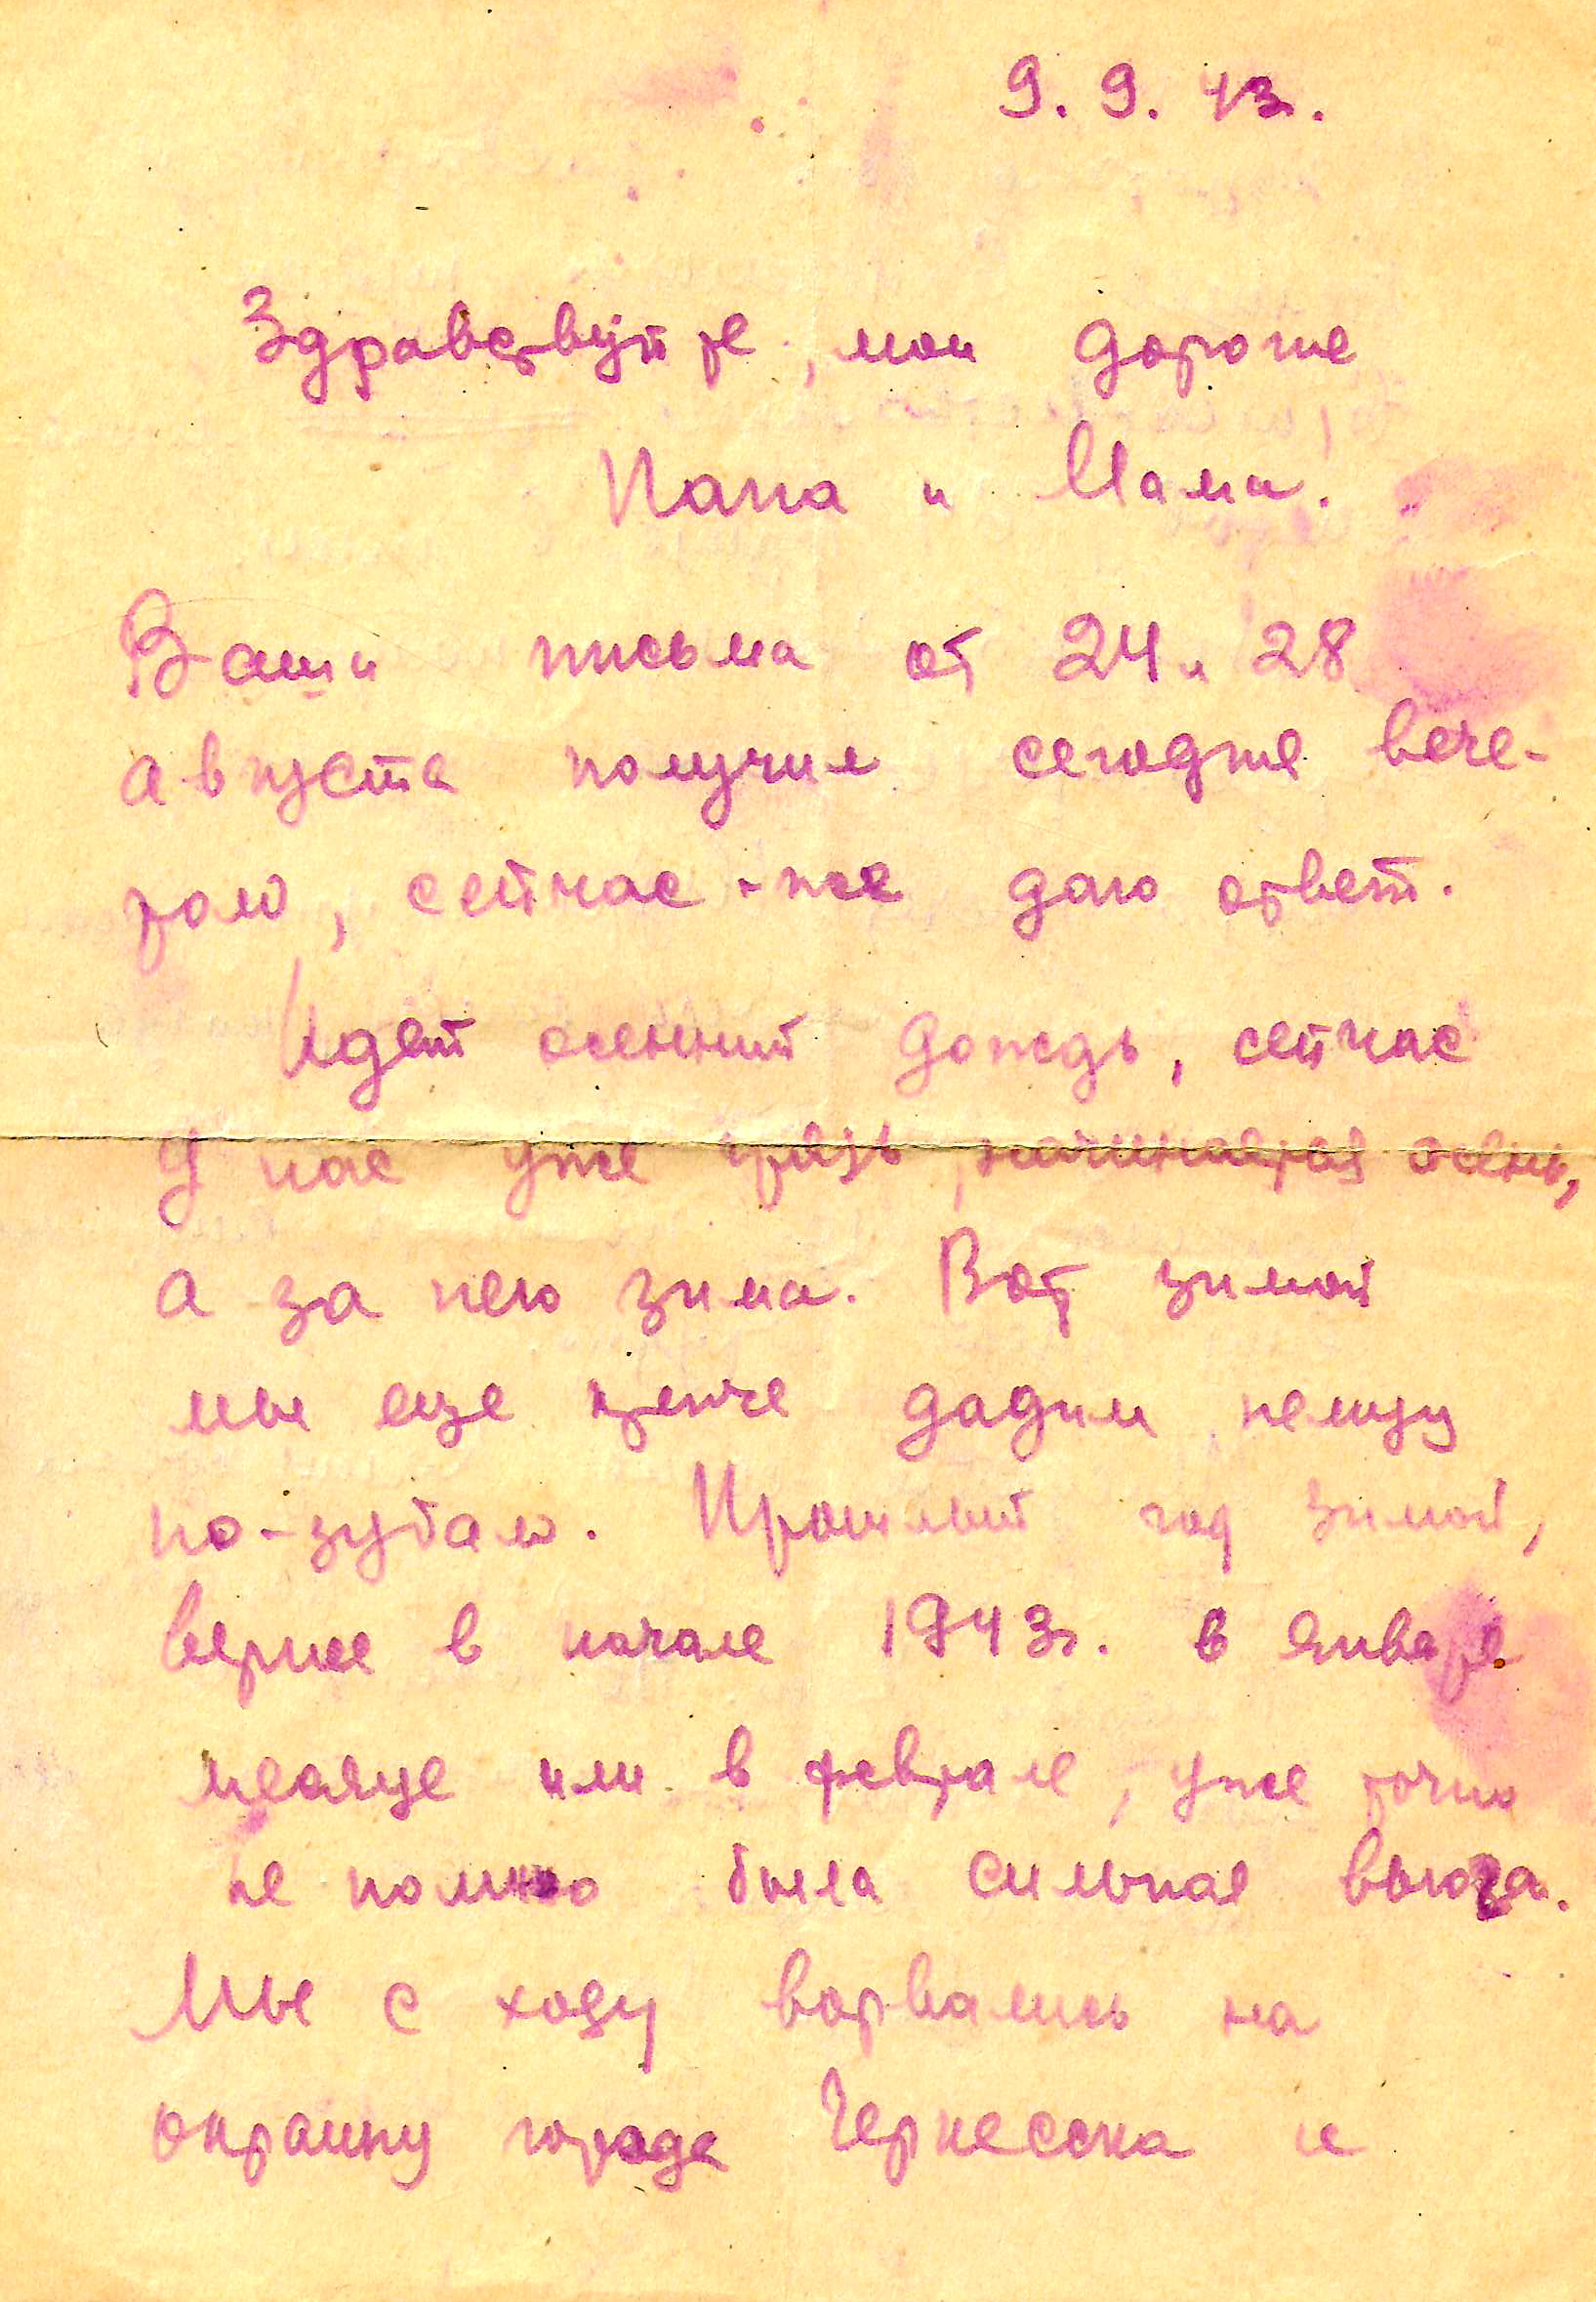 9. 9. 43г.
Здравствуйте, мои дорогие
Папа и Мама.
Ваши письма от 24 и 28
августа получил сегодня вече-
ром, сейчас-же даю ответ.
Идет осенний дождь, сейчас
у нас уже грязь, начинается осень,
а за нею зима. Вот зимой
мы еще крепче дадим немцу
по-зубам. Прошлый год зимой,
вернее в начале 1943г. в январе
месяце или в феврале, уже точно
не помню была сильная вьюга.
Мы с ходу ворвались на
окраину города Черкесска и